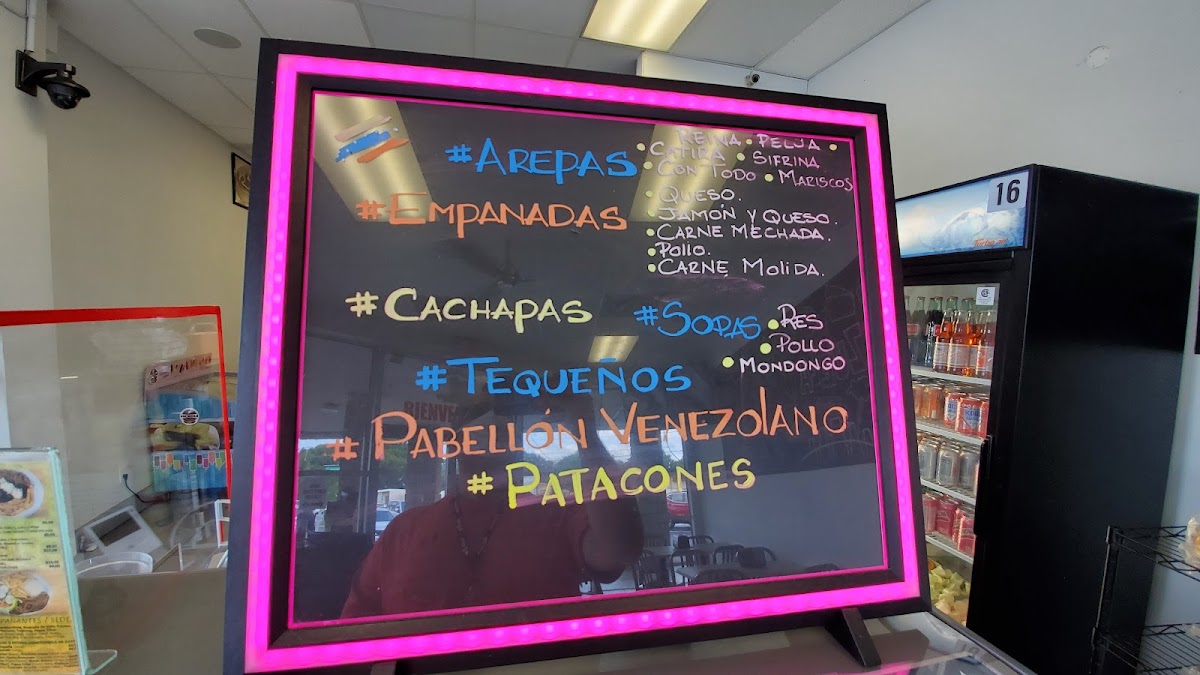 #AREPAS
• REINA • PELUA •
CATIRA • SIFRINA
• CON TODO • MARISCOS
#EMPANADAS
• QUESO.
• JAMÓN Y QUESO.
• CARNE MECHADA.
• POLLO.
• CARNE MOLIDA.
#CACHAPAS
#SOPAS • RES
• POLLO
• MONDONGO
#TEQUEÑOS
#PABELLÓN VENEZOLANO
#PATACONES
16